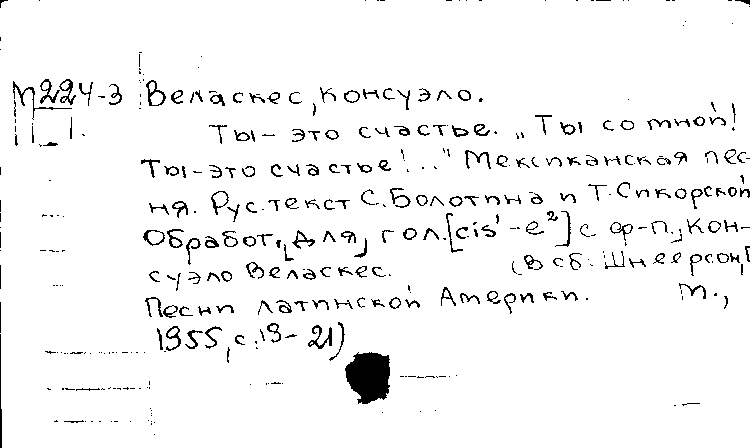 М224-3 Веласкес, Консуэло.
Ты - это счастье. „Ты со мной!
Ты - это счастье!..." Мексиканская пес-
ня. Рус. текст С. Болотина и Т. Сикорской
Обработ. [для] гол. [cis¹ - e²] с ф-п., Кон-
суэло Веласкес. (В сб: Шнеерсон, Г
Песни латинской Америки. М.,
1955, с. 19 - 21)